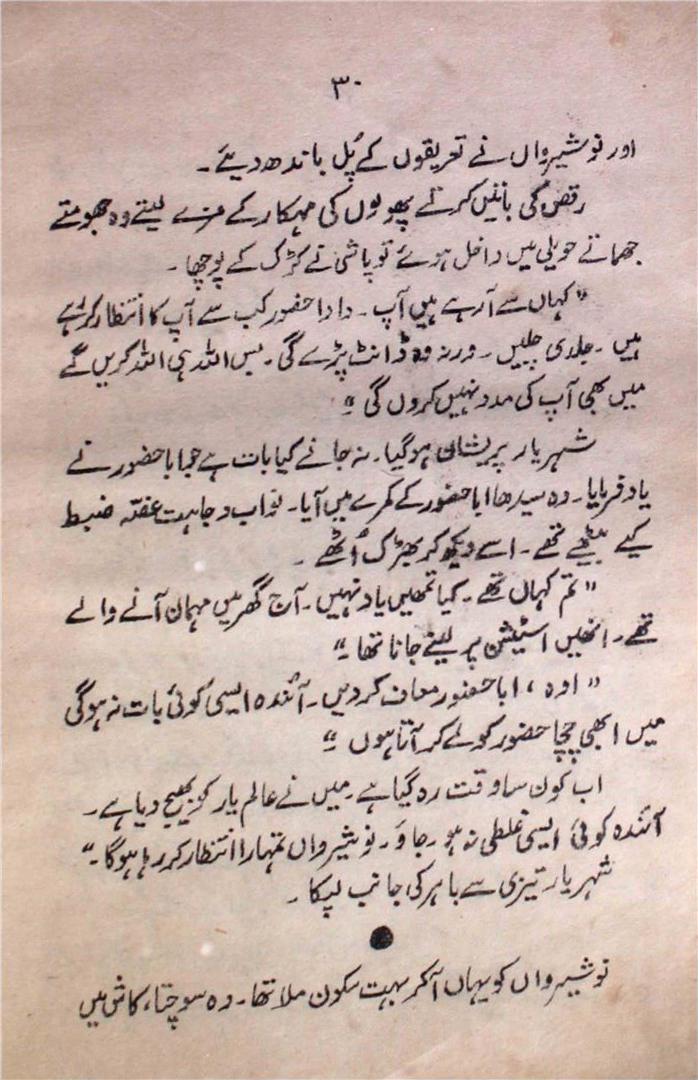 ۳۰
اور نوشیرواں نے تعریفوں کے پُل باندھ دیئے۔
رقص کی باتیں کرتے پھولوں کی مہکار کے مزے لیتے وہ جھومتے
جھماتے حویلی میں داخل ہوئے تو پاشی نے کڑک کے پوچھا۔
"کہاں سے آرہے ہیں آپ۔ دادا حضور کب سے آپ کا انتظار کررہے
ہیں۔ جلدی چلیں۔ ورنہ وہ ڈانٹ پڑے گی۔ بس اللہ ہی اللہ کریں گے
میں بھی آپ کی مدد نہیں کروں گی"
شہریار پریشان ہوگیا۔ نہ جانے کیا بات ہے جو ابا حضور نے
یاد فرمایا۔ وہ سیدھا ابا حضور کے کمرے میں آیا۔ نواب وجاہت غصّہ ضبط
کیے بیٹھے تھے۔ اسے دیکھ کر بھڑک اُٹھے۔
"تم کہاں تھے۔ کیا تمھیں یاد نہیں۔ آج گھر میں مہمان آنے والے
تھے۔ انھیں اسٹیشن پر لینے جانا تھا۔"
"اوہ، ابا حضور معاف کردیں۔ آئندہ ایسی کوئی بات نہ ہوگی
میں ابھی چچا حضور کو لے کر آتا ہوں"
اب کون سا وقت رہ گیا ہے۔ میں نے عالم یار کو بھیج دیا ہے۔
آئندہ کوئی ایسی غلطی نہ ہو۔ جاؤ۔ نوشیرواں تمہارا انتظار کررہا ہوگا۔"
شہریار تیزی سے باہر کی جانب لپکا۔
نوشیرواں کو یہاں آکر بہت سکون ملا تھا۔ وہ سوچتا، کاش میں